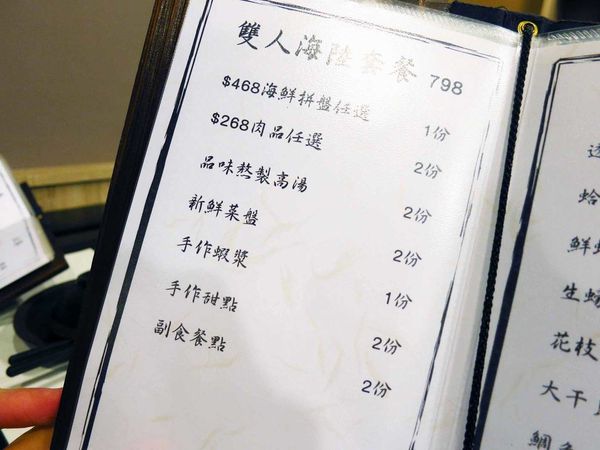 雙人海陸套餐 798
$468海鮮拼盤任選 1份
$268肉品任選 2份
品味熬製高湯 2份
新鮮菜盤 2份
手作蝦漿 1份
手作甜點 2份
副食餐點 2份
透
蛤
鮮
生蠔
花枝
大干貝
鯛魚